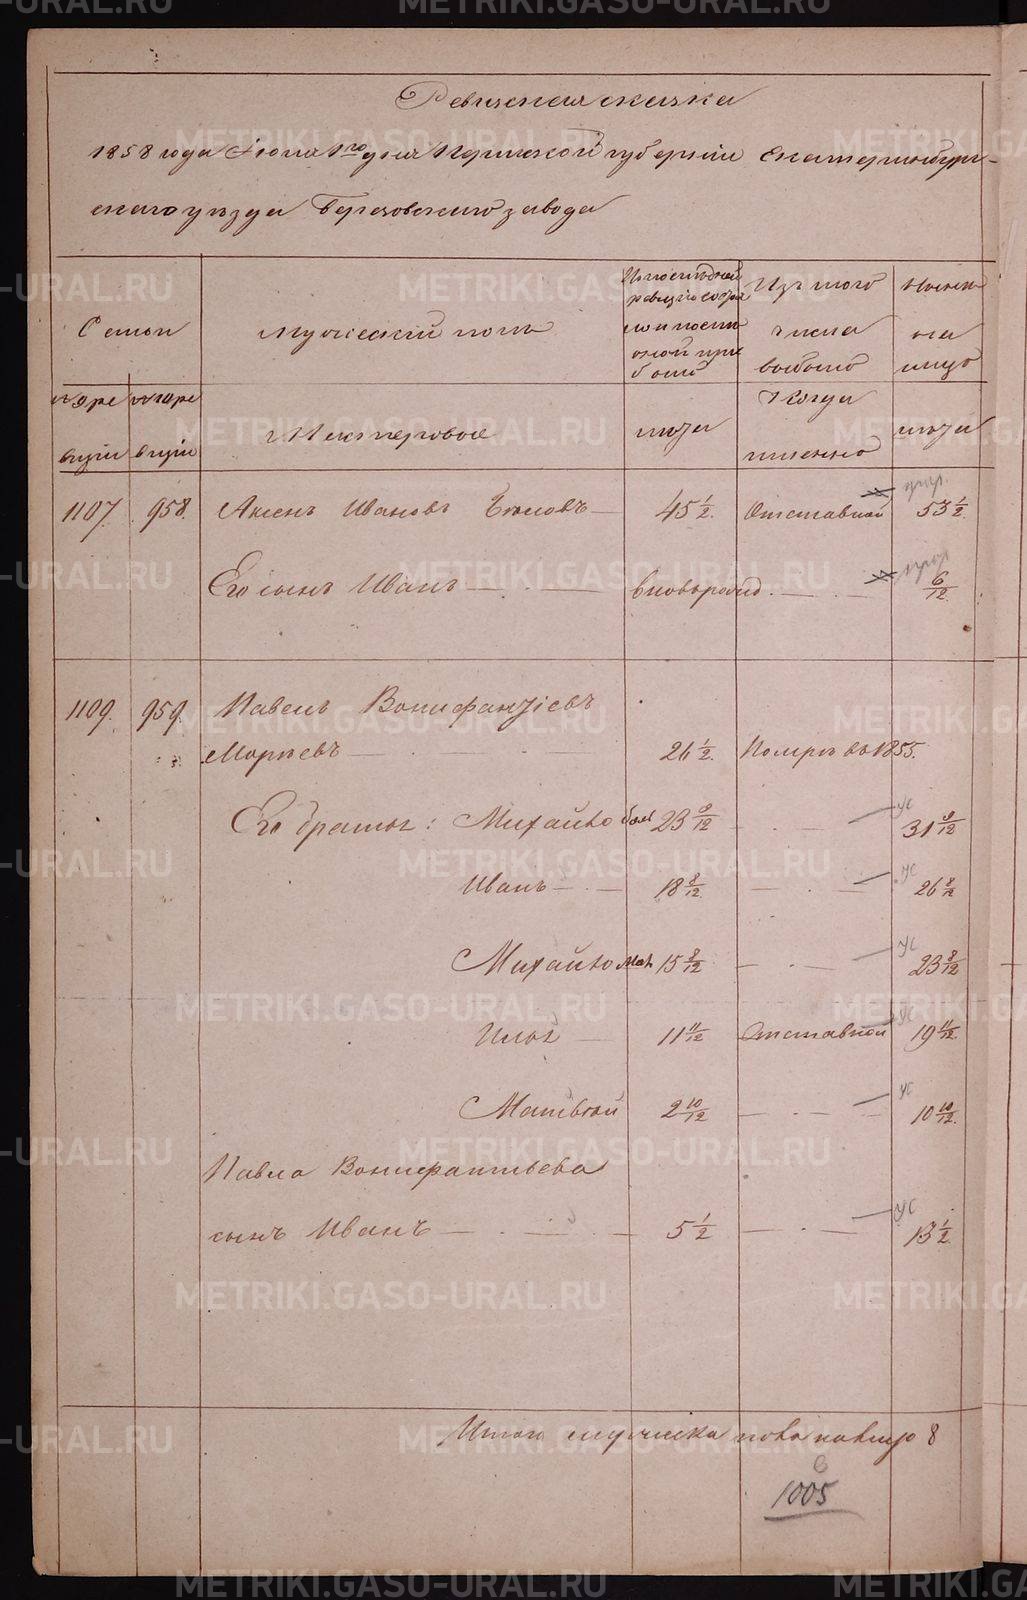 METRIKI.GASO-URAL.RU
Ревизская сказка
1858 года Июня 1го дня Пермской губернии Екатеринбург-
скаго уезда Березовскаго завода
Семьи
Мужеский полъ
По последней ревизии состояло и после оной прибыло
Изъ того числа выбыло
Ныне на лицо
по 9 ре
визiи
по 10 ре
визiи
Мастеровое
лета
Когда
именно
лета
1107. 958. Аксенъ Ивановъ Беловъ — 45 1/2. Отставной 53 1/2
Его сынъ Иванъ — вновьрожд. — 6/12.
1109. 959. Павелъ Вонифантiевъ
Моревъ — 26 1/2. Помре въ 1855.
Его братья: Михайло бол 23 9/12 — ус 31 9/12
Иванъ — 18 8/12. — ус 26 8/12
Михайло мен. 15 8/12 — ус 23 8/12
Илья — 11 11/12 Отставной ус 19 11/12.
Матвей 2 10/12 — ус 10 10/12.
Павла Вонифантьева
сынъ Иванъ — 5 1/2 — ус 13 1/2.
Итого мужеска пола налицо 8
6
1005